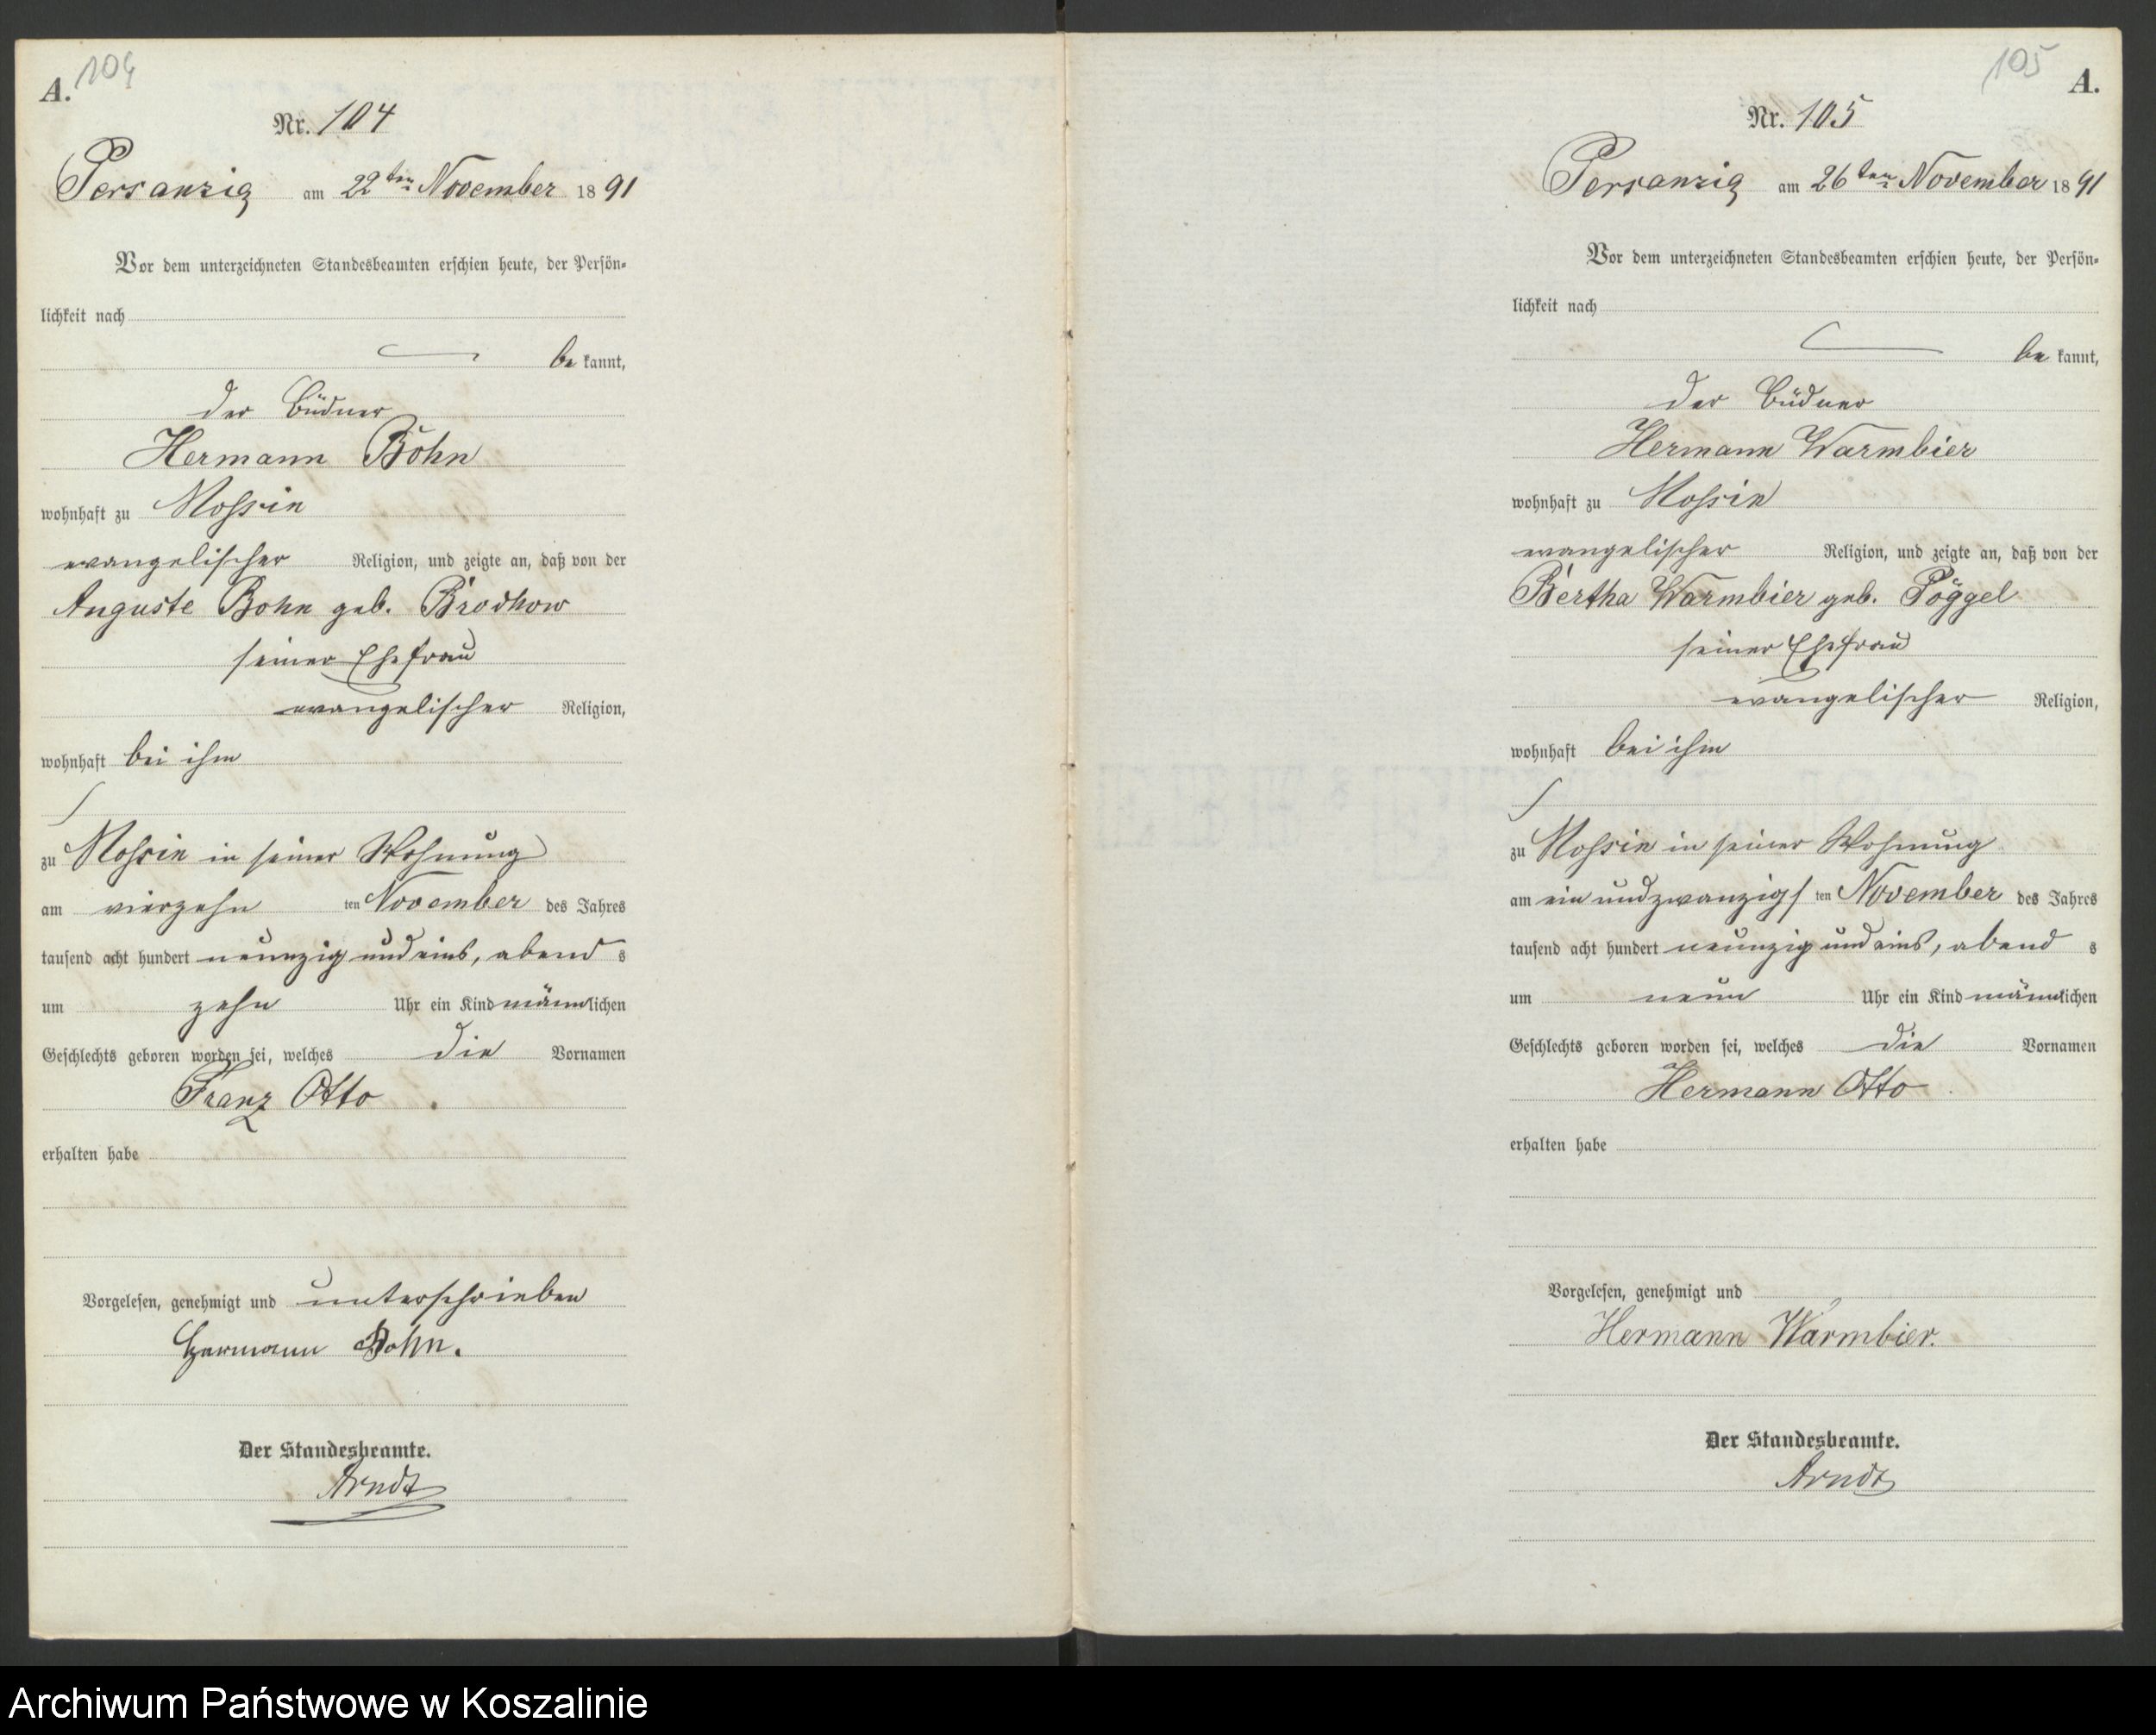 A. 104
Nr. 104
Persanzig am 22ten November 1891
Vor dem unterzeichneten Standesbeamten erschien heute, der Persön-
lichkeit nach
be kannt,
der Büdner
Hermann Bohn
wohnhaft zu Mossin
evangelischer Religion, und zeigte an, daß von der
Auguste Bohn geb. Brodhow
seiner Ehefrau
evangelischer Religion,
wohnhaft bei ihm
zu Mossin in seiner Wohnung
am vierzehn ten November des Jahres
tausend acht hundert neunzig und eins, abend s
um zehn Uhr ein Kind männlichen
Geschlechts geboren worden sei, welches die Vornamen
Franz Otto
erhalten habe
Vorgelesen, genehmigt und unterschrieben
Hermann Bohn.
Der Standesbeamte.
Arndt
105 A.
Nr. 105
Persanzig am 26ten November 1891
Vor dem unterzeichneten Standesbeamten erschien heute, der Persön-
lichkeit nach
be kannt,
der Büdner
Hermann Warmbier
wohnhaft zu Mossin
evangelischer Religion, und zeigte an, daß von der
Bertha Warmbier geb. Pöggel
seiner Ehefrau
evangelischer Religion,
wohnhaft bei ihm
zu Mossin in seiner Wohnung
am ein und zwanzigs ten November des Jahres
tausend acht hundert neunzig und eins, abend s
um neun Uhr ein Kind männlichen
Geschlechts geboren worden sei, welches die Vornamen
Hermann Otto
erhalten habe
Vorgelesen, genehmigt und
Hermann Warmbier.
Der Standesbeamte.
Arndt
Archiwum Państwowe w Koszalinie